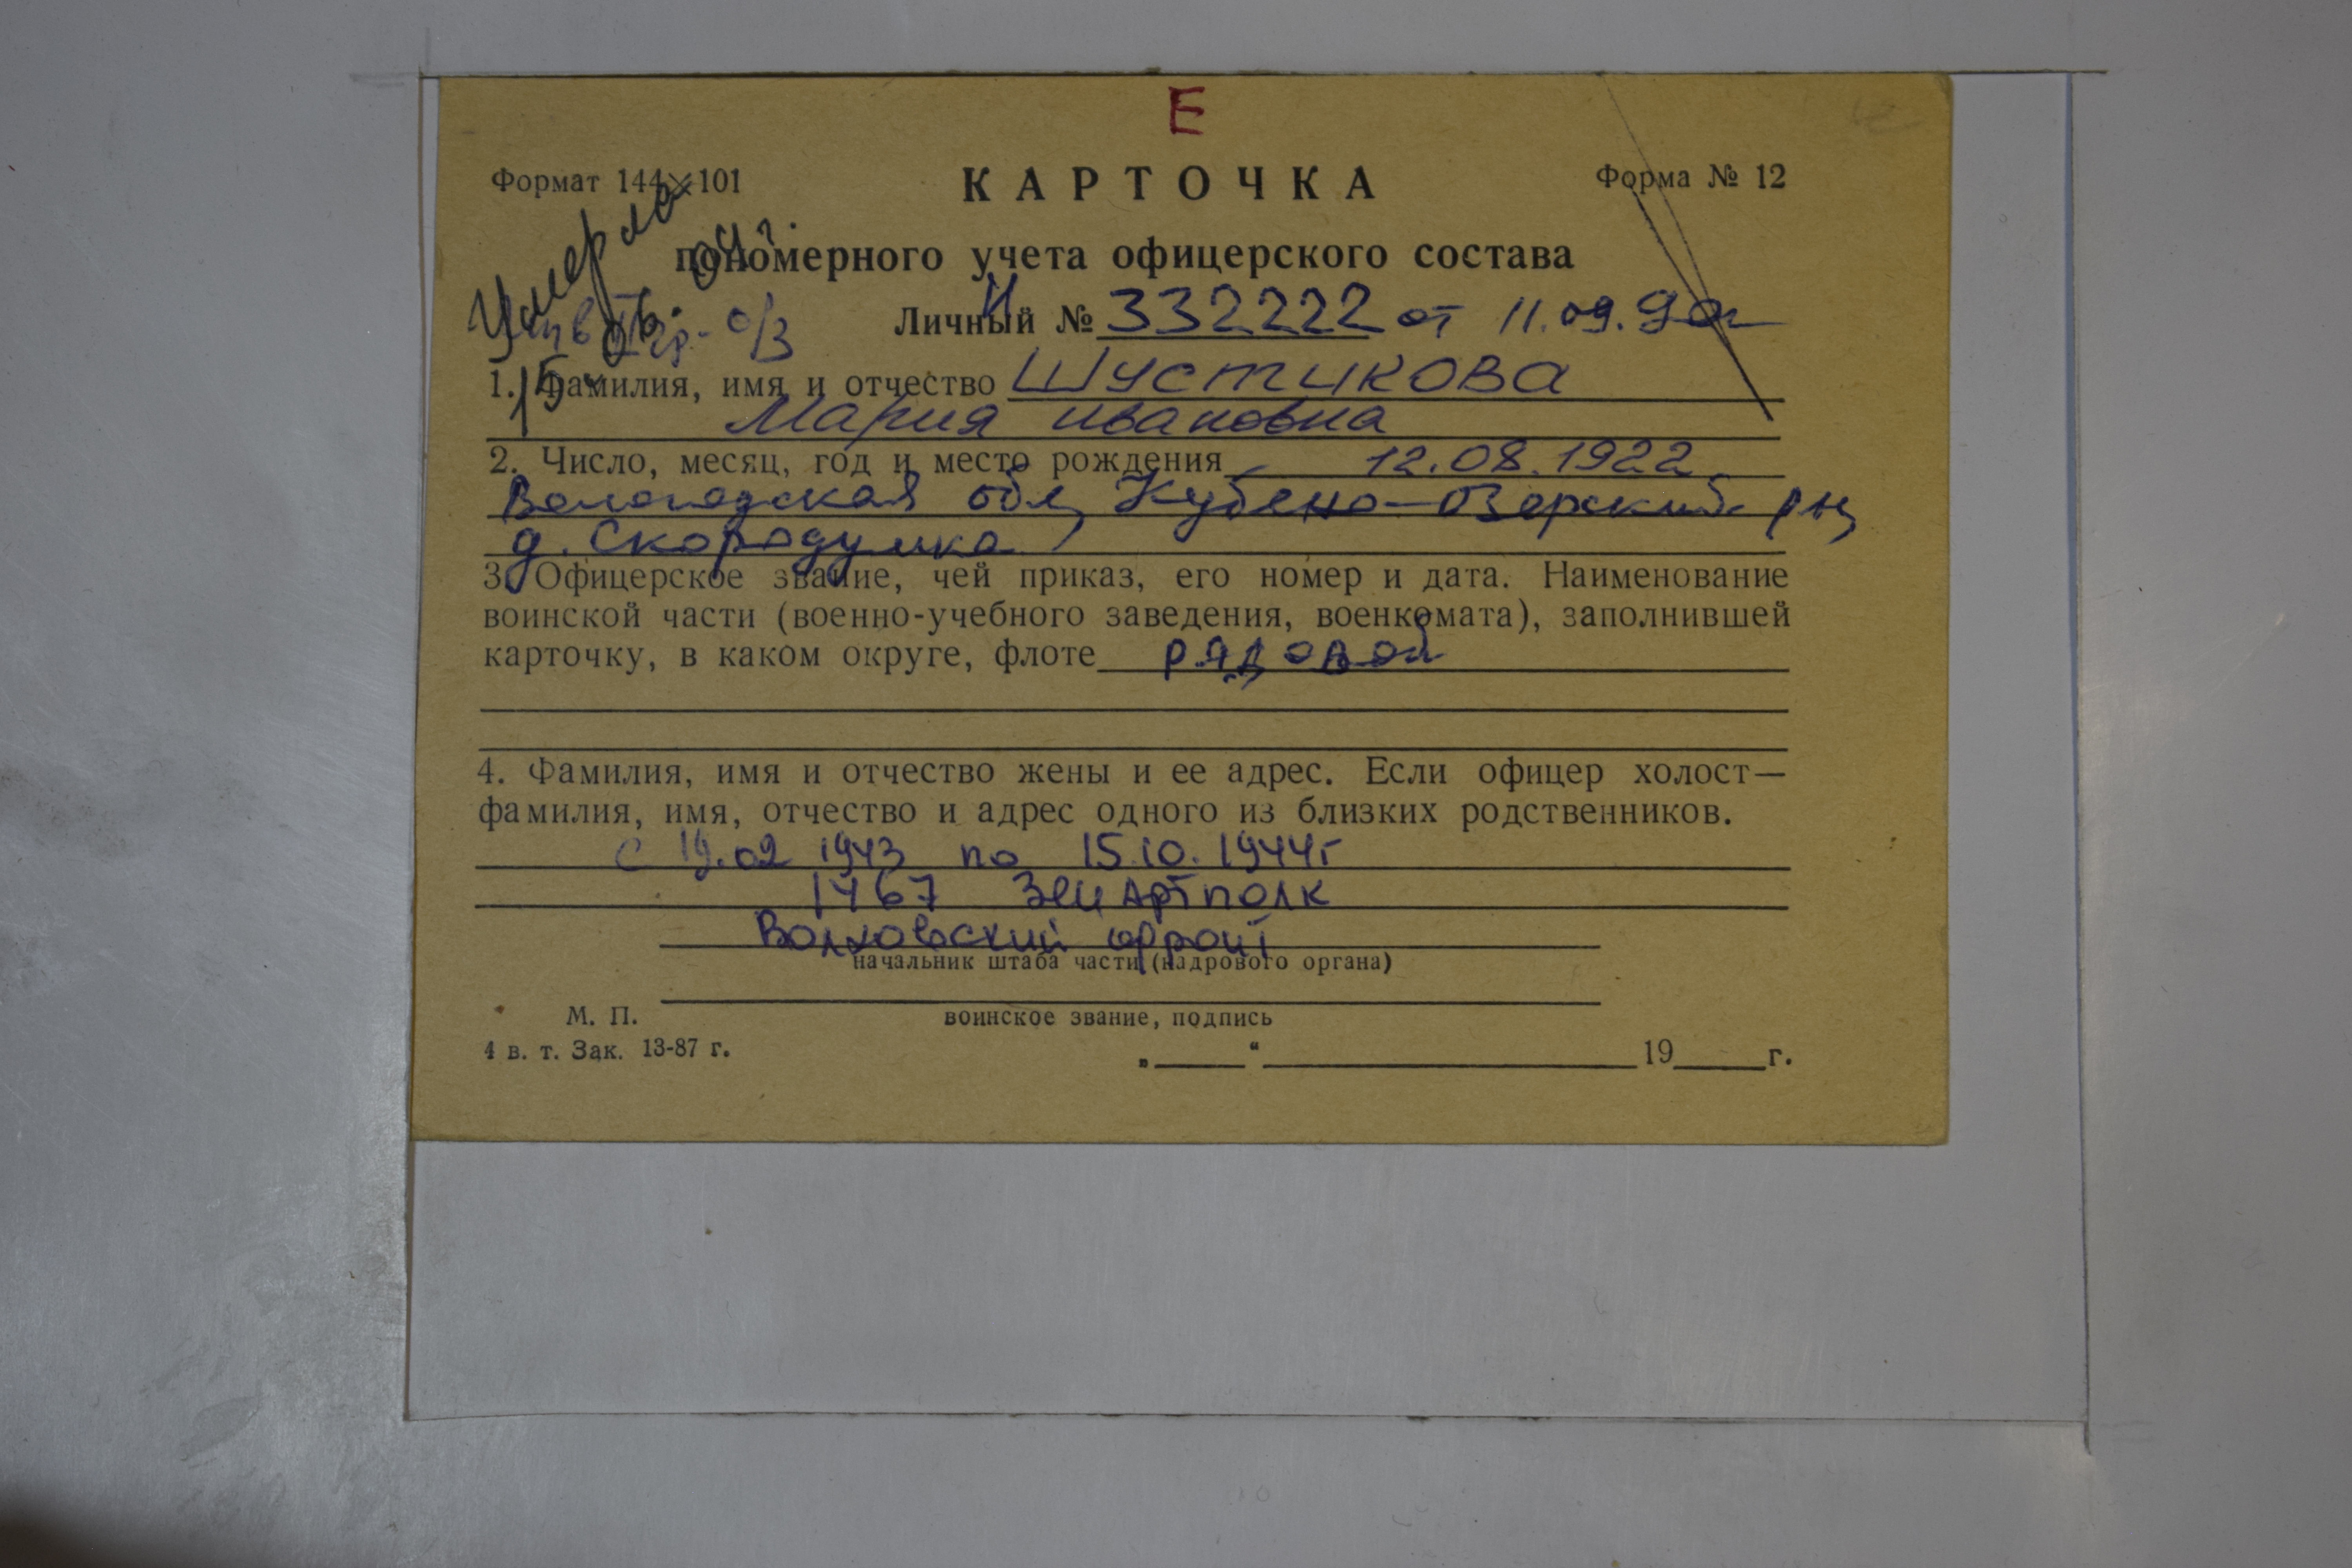 Е
Формат 144×101
КАРТОЧКА
Форма № 12
Умерла
15.06.04г.
пономерного учета офицерского состава
Инв IIгр. о/з
Личный № И 332222 от 11.09.90г
1. Фамилия, имя и отчество Шустикова
Мария Ивановна
2. Число, месяц, год и место рождения 12.08.1922
Вологодская обл, Кубено-Озерский р-н,
д. Скородумка
3. Офицерское звание, чей приказ, его номер и дата. Наименование
воинской части (военно-учебного заведения, военкомата), заполнившей
карточку, в каком округе, флоте рядовой
4. Фамилия, имя и отчество жены и ее адрес. Если офицер холост—
фамилия, имя, отчество и адрес одного из близких родственников.
с 19.02 1943 по 15.10.1944г
1467 Зенартполк
Волховский фронт
начальник штаба части (кадрового органа)
М. П.
воинское звание, подпись
4 в. т. Зак. 13-87 г.
„____“ ____________ 19____г.